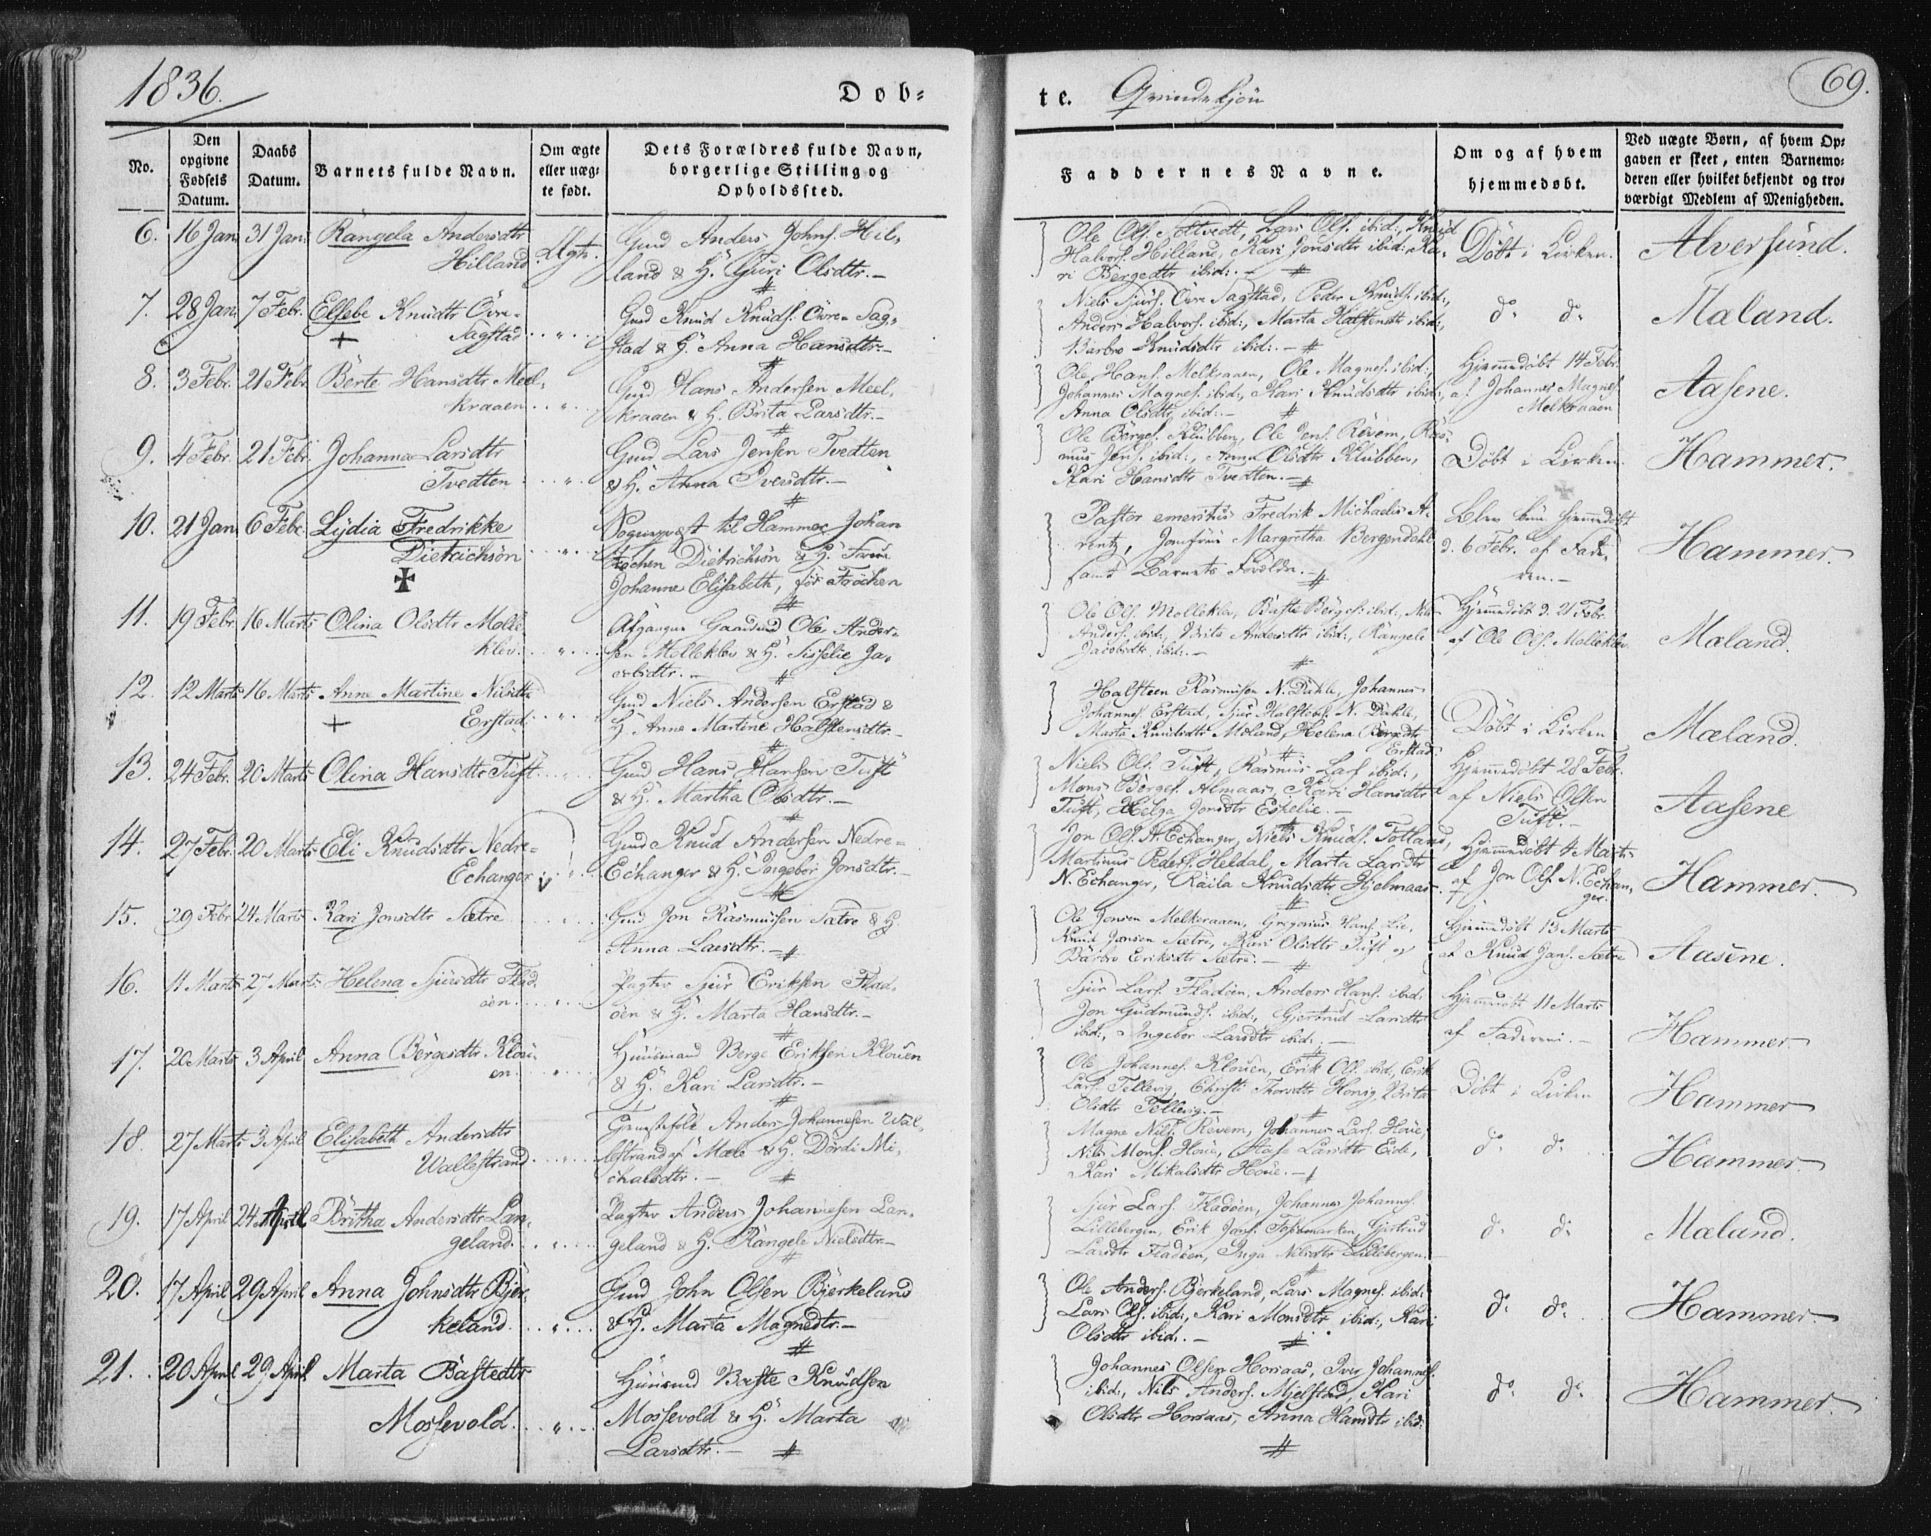 1836.
Dob-
te. Qvindekjön
69.
No.
Den opgivne Fødsels Datum.
Daabs Datum.
Barnets fulde Navn.
Om ægte eller uægte født.
Dets Forældres fulde Navn, borgerlige Stilling og Opholdssted.
Faddernes Navne.
Om og af hvem hjemmedøbt.
Ved uægte Børn, af hvem Opgaven er skeet, enten Barnemoderen eller hvilket bekjendt og troværdigt Medlem af Menigheden.
6. 16 Jan. 31 Jan. Rangela Andersdtr
Hilland Ægte.
Gmd Anders Johns. Hil-
land & H. Guri Olsdtr.-
Ole Ols. Toltvedt, Lars Ols. ibid:, Knud
Halvors. Hilland, Kari Jonsdtr ibid: Ka-
ri Bergedtr ibid:.-
Döbt i Kirken.
Alversund.
7. 28 Jan. 7 Febr. Elsebe Knudtr Övre-
Sagstad
Gmd Knud Knuds. Övre Sag-
stad & H. Anna Hansdtr.-
Niels Sjurs. Övre Sagstad, Peder Knuds. ibid:,
Anders Halvors. ibid:, Marta Halstendtr ibid:,
Barbro Knudsdtr ibid:.-
do do
Mæland.
8. 3 Febr. 21 Febr. Berte Hansdtr Meel-
kraaen
Gmd Hans Andersen Meel-
kraaen & H. Brita Larsdtr.-
Ole Hans. Melkraaen, Ole Magnes. ibid:,
Johannes Magnes. ibid:, Kari Knudsdtr ibid:,
Anna Olsdtr ibid:.-
Hjemmedöbt 14 Febr.
af Johannes Magnes.
Melkraaen
Aasene.
9. 4 Febr. 21 Febr. Johanna Larsdtr
Tvedten
Gmd Lars Jensen Tvedten
& H. Anna Iversdtr.-
Ole Börges. Klubben, Ole Jens. Rövem, Ras-
mus Jens. ibid:, Anna Olsdtr Klubben,
Kari Hansdtr Tvedten.-
Döbt i Kirken
Hammer.
10. 21 Jan 6 Febr. Lydia Fredrikke
Dietrichson
Sogneprest til Hammer Johan
Dietrichson & H. Frue
Johanne Elisabeth,
Pastor emeritus Fredrik Michaelis A-
rentz, Jomfrue Margretha Bergendahl
samt Barnets Forældre.-
Blev kun hjemmedöbt
d. 6 Febr. af Fade-
ren.-
Hammer.
11. 19 Febr. 16 Marts Olina Olsdtr Molle
klev
Afgangne Gaardmd Ole Ander-
sen Molleklev & H. Sisselie Ja-
cobsdtr.-
Ole Ols. Molleklev, Baste Börges. ibid:, Nils
Anders. ibid:, Brita Andersdtr ibid:, Rangele
Jacobsdtr ibid:.-
Hjemmedöbt d. 21 Febr.
af Ole Ols. Molleklev.
Mæland.
12. 12 Marts 16 Marts Anne Martine Nilsdtr
Erstad
Gmd Niels Andersen Erstad &
H. Anne Martine Halstensdtr.-
Halsteen Rasmusen N. Dahle, Johannes
Johannes. Erstad, Sjur Halstens. N. Dahle,
Marta Knudsdtr Mæland, Helena Börgedtr
Erstad.
Döbt i Kirken
Mæland.
13. 24 Febr. 20 Marts Olina Hansdtr Tuft
Gmd Hans Hansen Tuft
& H. Martha Olsdtr.-
Niels Ols. Tuft, Rasmus Lars. ibid:,
Mons Börges. Almaas, Kari Hansdtr
Tuft, Helga Jonsdtr Eskelie.-
Hjemmedöbt 28 Febr.
af Niels Olsen
Tuft.-
Aasene
14. 27 Febr. 20 Marts Eli Knudsdtr Nedre-
Echanger
Gmd Knud Andersen Nedre-
Echanger & H. Ingebor Jonsdtr.-
Jon Ols. N. Echanger, Niels Knuds. Totland,
Martinus Peders. Heldal, Marta Larsdtr
N. Echanger, Raila Knudsdtr Hjelmaas.
Hjemmedöbt 4 Marts
af Jon Ols. N. Echan-
ger.
Hammer.
15. 29 Febr 24 Marts Kari Jonsdtr Sætre
Gmd Jon Rasmussen Sætre & H.
Anna Larsdtr.-
Ole Jonsen Melkeraaen, Gregorius Hans. Lie,
Knud Jonsen Sætre, Kari Olsdtr Tuft og
Barbro Eriksdtr Sætre.-
Hjemmedöbt 13 Marts
af Knud Jans. Sætre
Aasene.
16. 11 Marts 27 Marts Helena Sjursdtr Flad-
öen
Pagter Sjur Eriksen Flad-
öen & H. Marta Hansdtr.-
Sjur Lars. Fladöen, Anders Hans. ibid:
Jon Gudmunds. ibid:, Gjertrud Larsdtr
ibid:, Ingebor Larsdtr ibid:.-
Hjemmedöbt 11 Marts
af Faderen.-
Hammer
17. 20 Marts 3 April Anna Börgesdtr Klou-
en.
Huusmand Berge Eriksen Klouen
& H. Kari Larsdtr.-
Ole Johannes. Klouen, Erik Ols. ibid, Erik
Lars. Tellevig, Christi Thorsdtr Honig, Brita
Olsdtr Tellevig.-
Döbt i Kirken
Hammer
18. 27 Marts 3 April Elisabeth Andersdtr
Wallestrand
Anders Johannesen Wal-
lestrand & H. Dördi Mi-
chalsdtr.-
Magne Nils. Revem, Johannes Lars. Houe,
Nils Mons. Houe, Larsdtr Eide,
Kari Mikalsdtr Houe.-
do do
Hammer.
19. 17 April 24 April Britha Andersdtr Lan-
geland.
Pagter Anders Johannesen Lan-
geland & H. Rangele Nielsdtr-
Sjur Lars. Fladöen, Johannes Johannes.
Lillebergen, Erik Jons. Gjertrud
Larsdtr Fladöen, Inga Nilsdtr Lillebergen.
do do
Mæland.
20. 17 April 29 April Anna Johnsdtr Bjer-
keland.
Gmd John Olsen Bjerkeland
& H. Marta Magnedtr.-
Ole Anders. Bjerkeland, Lars Magnes. ibid:
Lars Ols. ibid:, Kari Monsdtr ibid:, Kari
Olsdtr ibid:.-
do do
Hammer.
21. 20 April 29 April Marta Bastedtr
Mossevold.
Huusmd Baste Knudsen
Mossevold & H. Marta
Larsdtr.-
Johannes Olsen Horsaas, Iver Johannes.
ibid:, Nils Anders. Mjelstad, Kari
Olsdtr Horsaas, Anna Hansdtr ibid:
do do
Hammer.